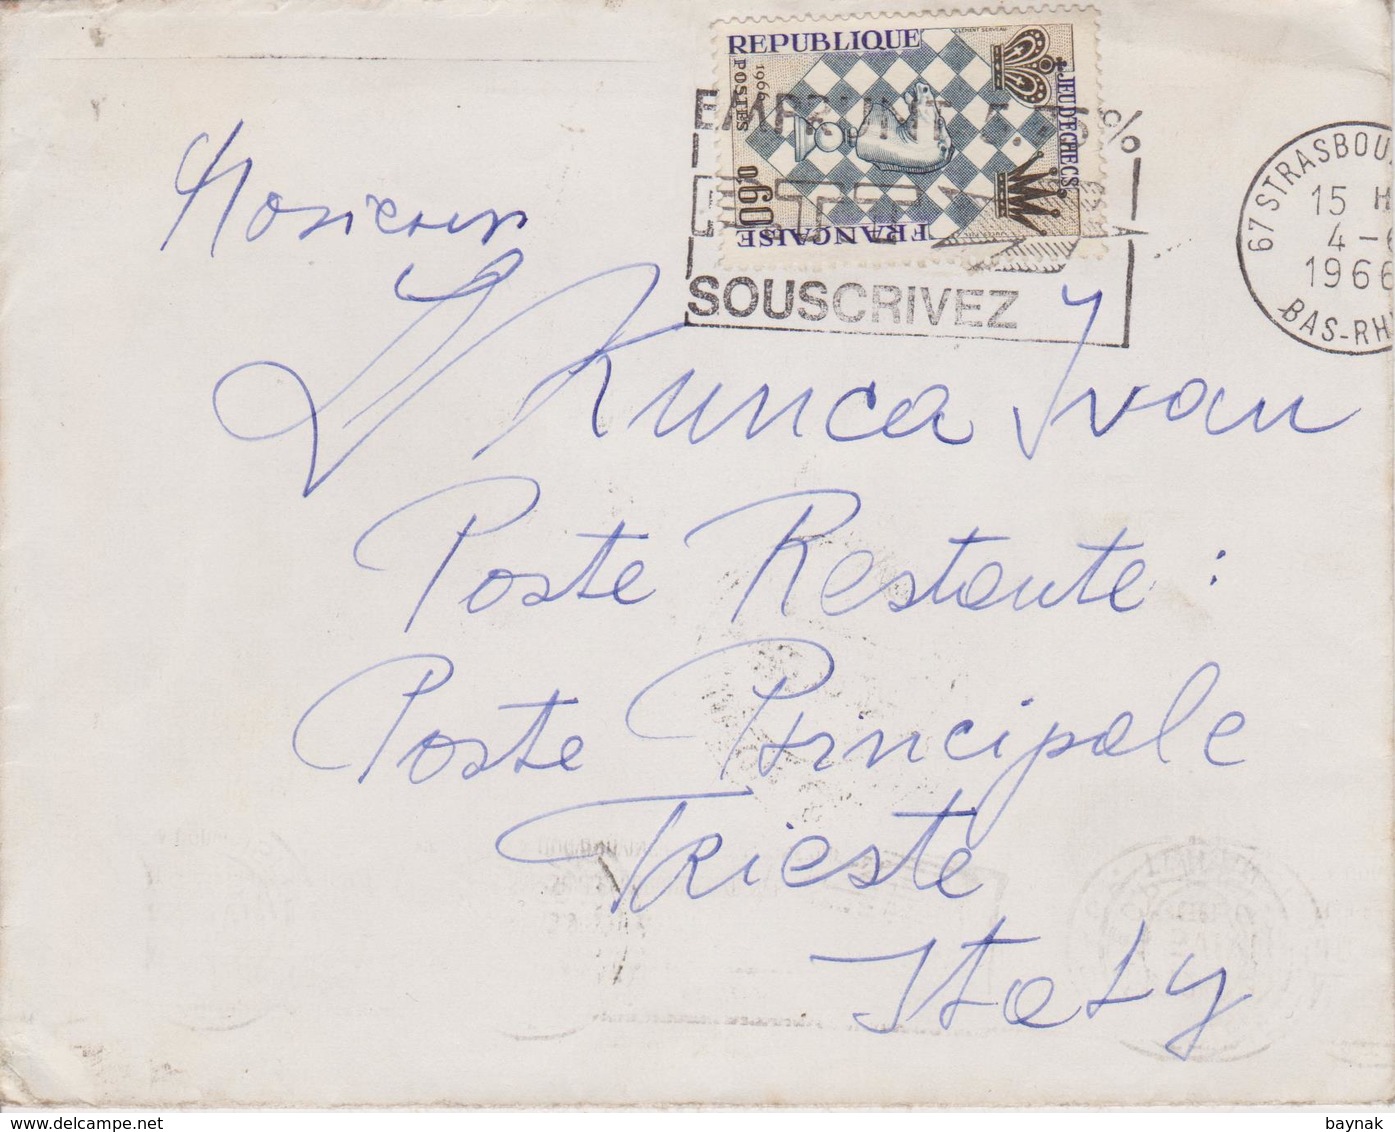 REPUBLIQUE
FRANÇAISE
1966
POSTES
0,60
JEU D'ECHECS
CLEMENT SERVEAU
EMPRUNT 5.75%
SOUSCRIVEZ
67 STRASBOU
15 H
4-6
1966
BAS-RH
Monsieur
Kunca Ivan
Poste Restante :
Poste Principale
Trieste
Italy
www.delcampe.net
baynak